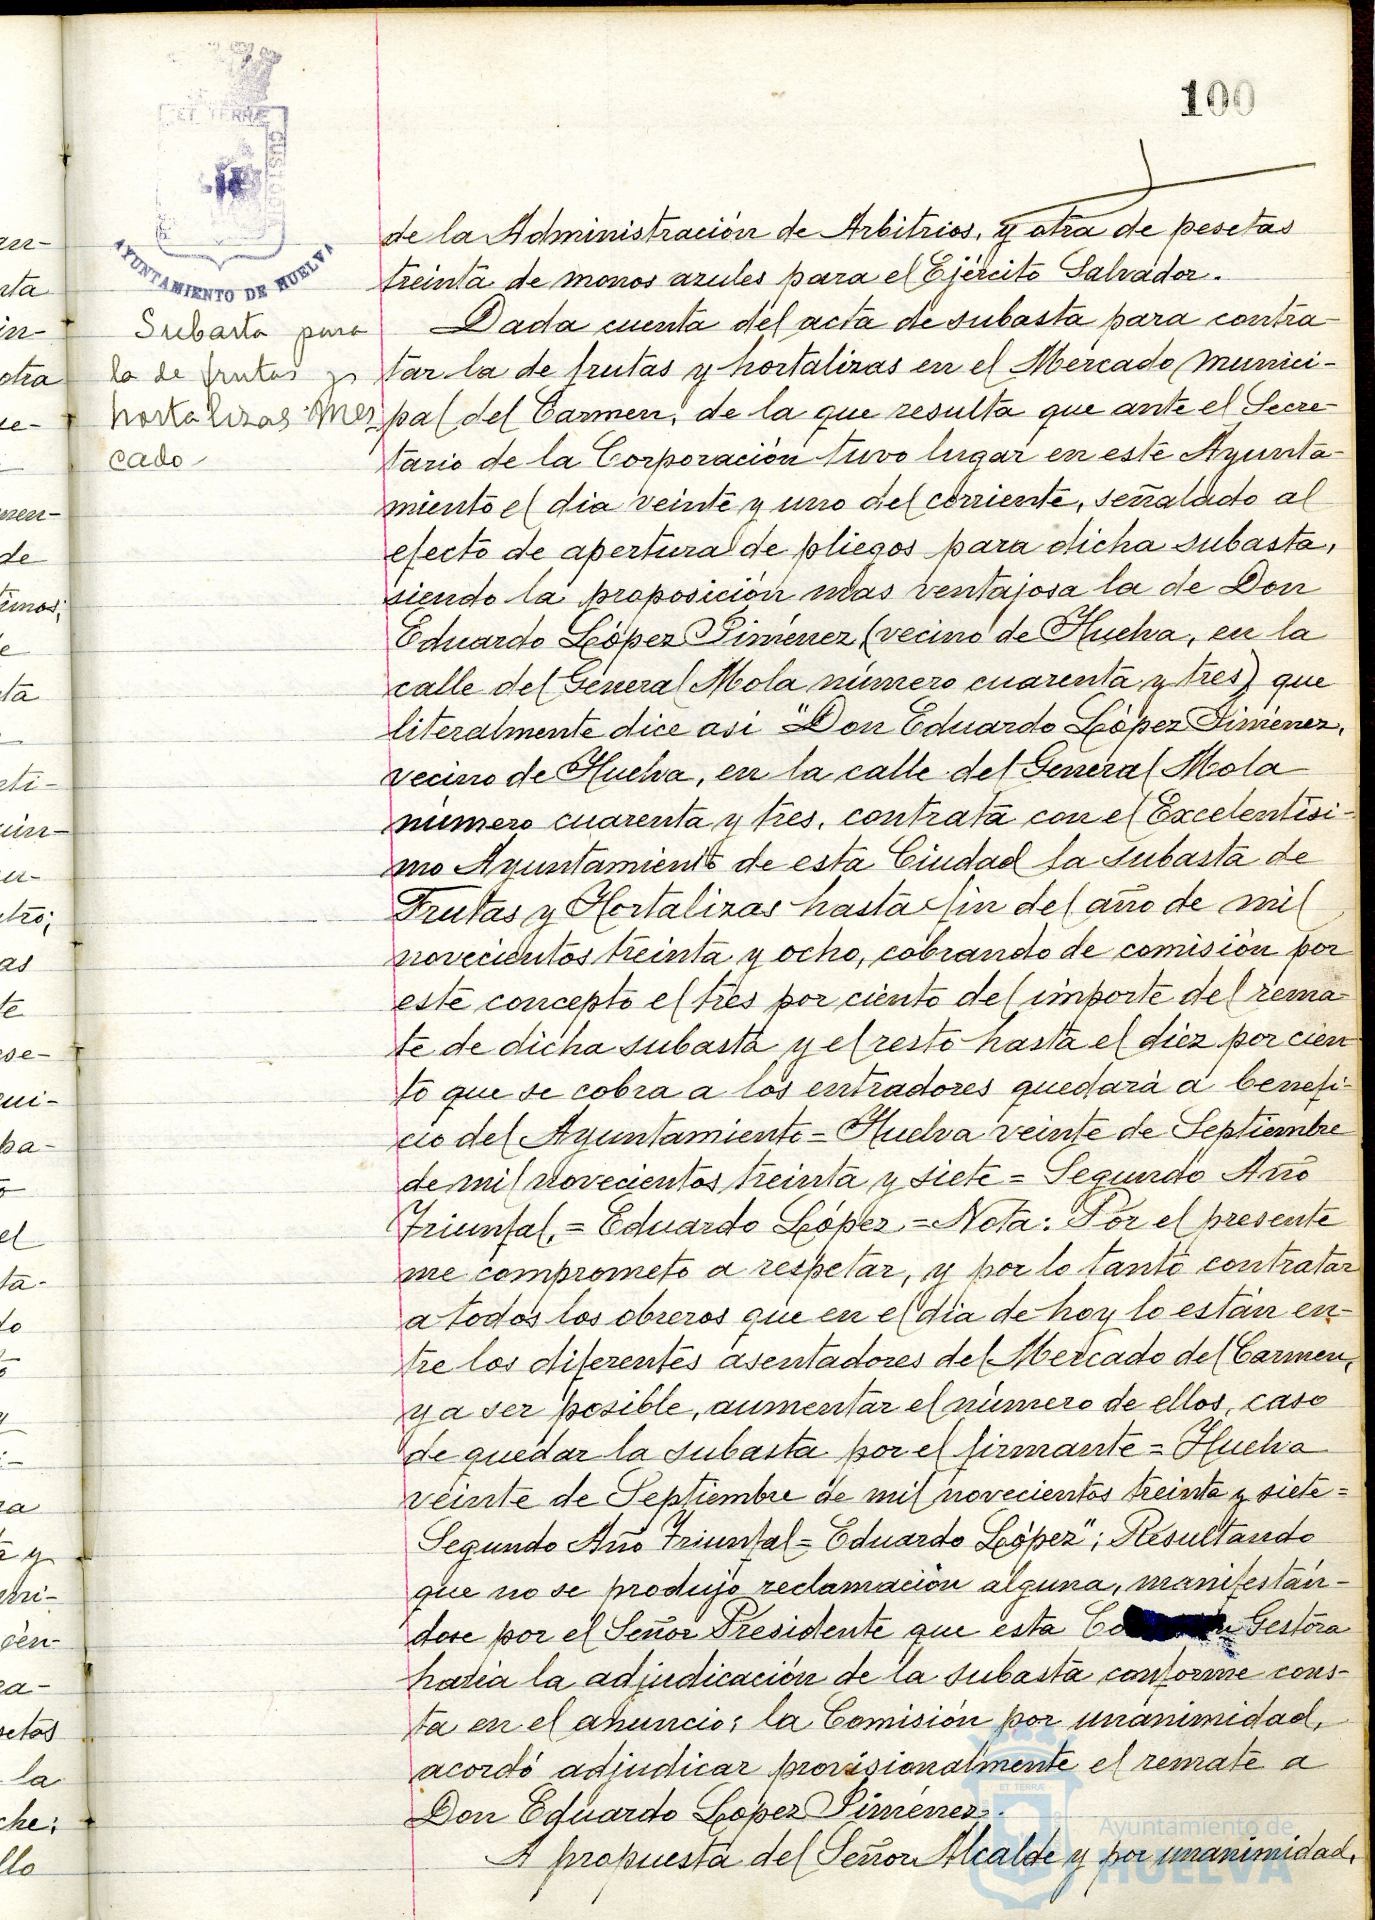 100
ET TERRÆ
CUSTODIA
AYUNTAMIENTO DE HUELVA
Subasta para
la de frutas y
hortalizas Mer
cado
de la Administración de Arbitrios, y otra de pesetas
treinta de monos azules para el Ejército Salvador.
Dada cuenta del acta de subasta para contra-
tar la de frutas y hortalizas en el Mercado Munici-
pal del Carmen, de la que resulta que ante el Secre-
tario de la Corporación tuvo lugar en este Ayunta-
miento el dia veinte y uno del corriente, señalado al
efecto de apertura de pliegos para dicha subasta,
siendo la proposición mas ventajosa la de Don
Eduardo López Jiménez, (vecino de Huelva, en la
calle del General Mola número cuarenta y tres) que
literalmente dice asi "Don Eduardo López Jiménez,
vecino de Huelva, en la calle del General Mola
número cuarenta y tres, contrata con el Excelentísi-
mo Ayuntamiento de esta Ciudad la subasta de
Frutas y Hortalizas hasta fin del año de mil
novecientos treinta y ocho, cobrando de comisión por
este concepto el tres por ciento del importe del rema-
te de dicha subasta y el resto hasta el diez por cien
to que se cobra a los entradores quedará a benefi-
cio del Ayuntamiento = Huelva veinte de Septiembre
de mil novecientos treinta y siete = Segundo Año
Triunfal. = Eduardo López = Nota: Por el presente
me comprometo a respetar, y por lo tanto contratar
a todos los obreros que en el dia de hoy lo están en-
tre los diferentes asentadores del Mercado del Carmen,
y a ser posible, aumentar el número de ellos, caso
de quedar la subasta por el firmante = Huelva
veinte de Septiembre de mil novecientos treinta y siete =
Segundo Año Triunfal = Eduardo López"; Resultando
que no se produjo reclamación alguna, manifestán-
dose por el Señor Presidente que esta Gestora
haria la adjudicación de la subasta conforme cons-
ta en el anuncio; la Comisión por unanimidad,
acordó adjudicar provisionalmente el remate a
Don Eduardo López Jiménez.
A propuesta del Señor Alcalde y por unanimidad,
ET TERRÆ
Ayuntamiento de
HUELVA